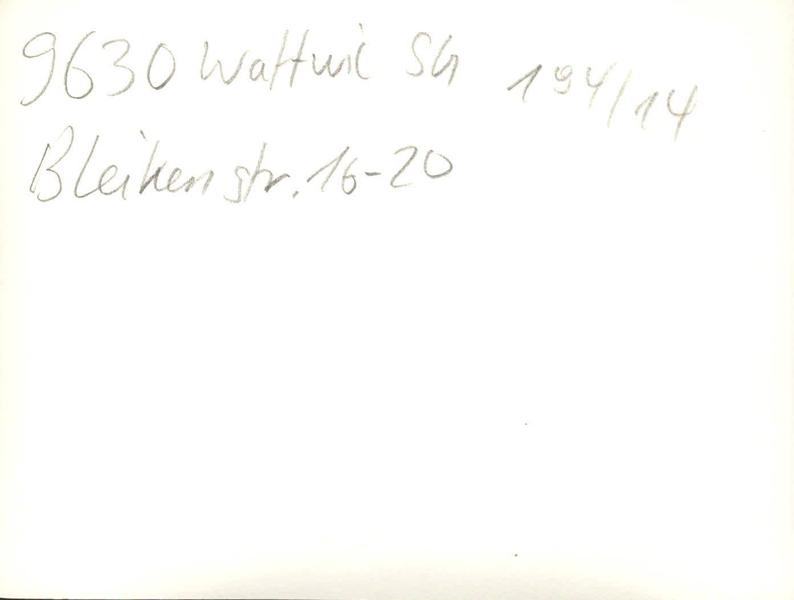 9630 Wattwil SG 194/14
Bleikenstr. 16-20